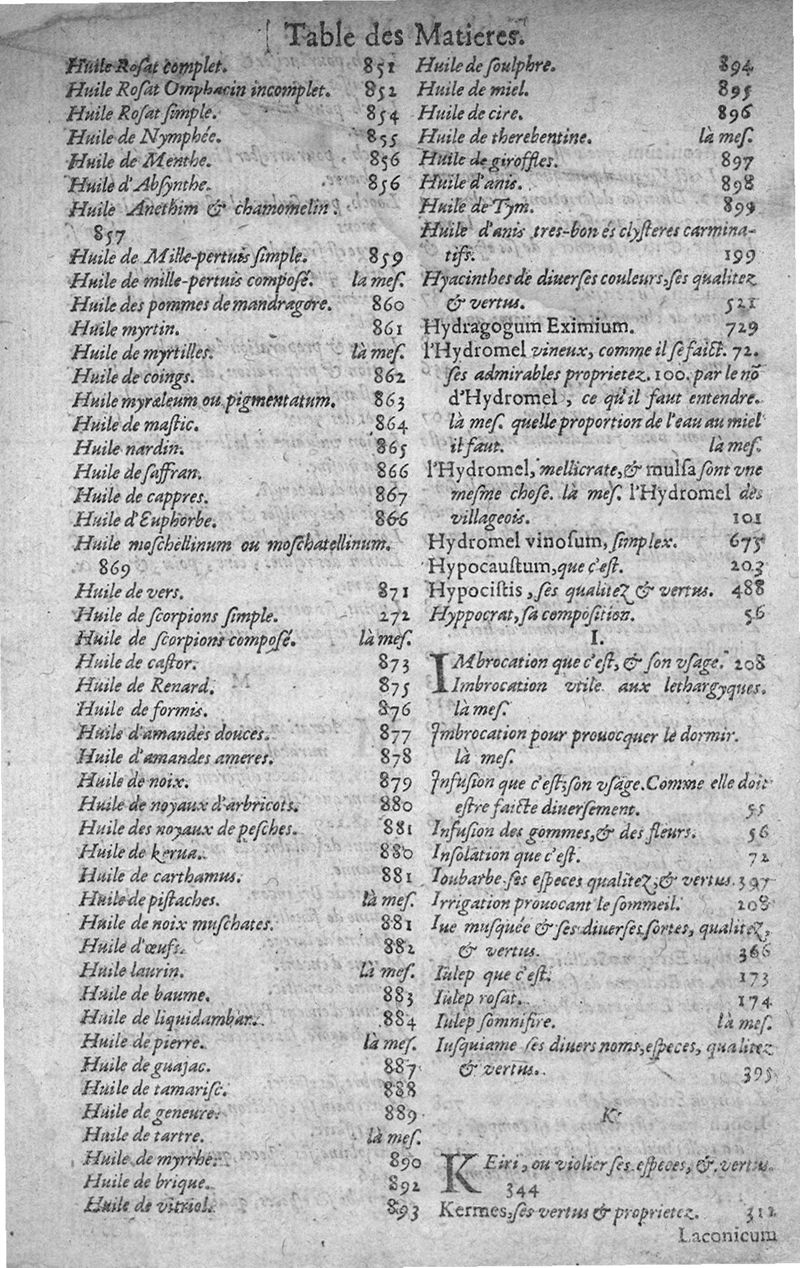 Table des Matieres.
Huile Rosat complet. 851
Huile Rosat Omphacin incomplet. 852
Huile Rosat simple. 854
Huile de Nymphée. 855
Huile de Menthe. 856
Huile d'Absynthe. 856
Huile Anethim & chamomelin.
857
Huile de Mille-pertuis simple. 859
Huile de mille-pertuis composé. la mes.
Huile des pommes de mandragore. 860
Huile myrtin. 861
Huile de myrtilles. là mes.
Huile de coings. 862
Huile myræleum ou pigmentatum. 863
Huile de mastic. 864
Huile nardin. 865
Huile de saffran. 866
Huile de cappres. 867
Huile d'Euphorbe. 866
Huile moschellinum ou moschatellinum.
869
Huile de vers. 871
Huile de scorpions simple. 272
Huile de scorpions composé. là mes.
Huile de castor. 873
Huile de Renard. 875
Huile de formis. 876
Huile d'amandes douces. 877
Huile d'amandes ameres. 878
Huile de noix. 879
Huile de noyaux d'arbricots. 880
Huile des noyaux de pesches. 881
Huile de kerua. 880
Huile de carthamus. 881
Huile de pistaches. là mes.
Huile de noix muschates. 881
Huile d'œufs. 882
Huile laurin. là mes.
Huile de baume. 883
Huile de liquidambar. 884
Huile de pierre. là mes.
Huile de guajac. 887
Huile de tamarisc. 888
Huile de geneure. 889
Huile de tartre. là mes.
Huile de myrrhe. 890
Huile de brique. 892
Huile de vitriol. 893
Huile de soulphre. 894
Huile de miel. 895
Huile de cire. 896
Huile de therebentine. là mes.
Huile de giroffles. 897
Huile d'anis. 898
Huile de Tym. 899
Huile d'anis tres-bon és clysteres carmina-
tifs. 199
Hyacinthes de diuerses couleurs, ses qualitez
& vertus. 521
Hydragogum Eximium. 729
l'Hydromel vineux, comme il se faict. 72.
ses admirables proprietez. 100. par le nō
d'Hydromel, ce qu'il faut entendre.
là mes. quelle proportion de l'eau au miel
il faut. là mes.
l'Hydromel, mellicrate, & mulsa sont vne
mesme chose. là mes. l'Hydromel des
villageois. 101
Hydromel vinosum, simplex. 675
Hypocaustum, que c'est. 203
Hypocistis, ses qualitez & vertus. 488
Hyppocrat, sa composition. 56
I.
IMbrocation que c'est, & son vsage. 208
Imbrocation vtile aux lethargyques.
là mes.
Imbrocation pour prouocquer le dormir.
là mes.
Infusion que c'est, son vsage. Comme elle doit
estre faicte diuersement. 55
Infusion des gommes, & des fleurs. 56
Insolation que c'est. 72
Ioubarbe ses especes qualitez, & vertus. 397
Irrigation prouocant le sommeil. 208
Iue musquée & ses diuerses sortes, qualitez,
& vertus. 366
Iulep que c'est. 173
Iulep rosat. 174
Iulep somnifire. là mes.
Iusquiame ses diuers noms, especes, qualitez
& vertus. 395
K
KEiri, ou violier ses especes, & vertus.
344
Kermes, ses vertus & proprietez. 312
Laconicum